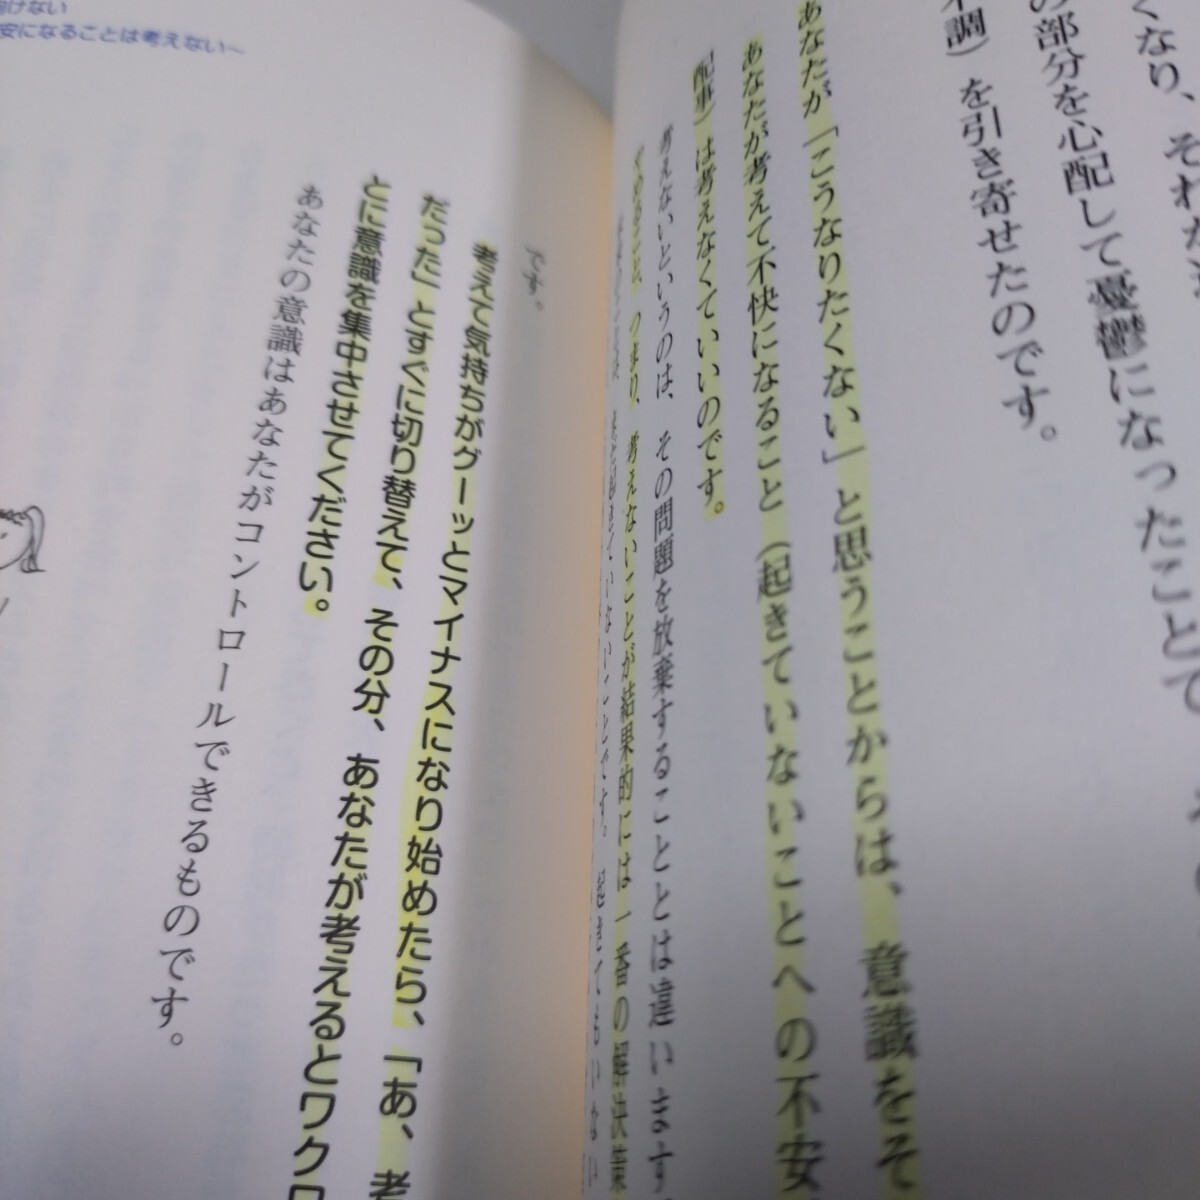 くなり、それだ
の部分を心配して憂鬱になったことで、そ
不調）を引き寄せたのです。
あなたが「こうなりたくない」と思うことからは、意識をそ
あなたが考えて不快になること（起きていないことへの不安、
配事）は考えなくていいのです。
考えないというのは、その問題を放棄することとは違います。
やめること、つまり、考えないことが結果的には一番の解決策
まだ起きていないことです。起きてもいない
向けない
安になることは考えない〜
です。
考えて気持ちがグーッとマイナスになり始めたら、「あ、考
だった」とすぐに切り替えて、その分、あなたが考えるとワク
とに意識を集中させてください。
あなたの意識はあなたがコントロールできるものです。